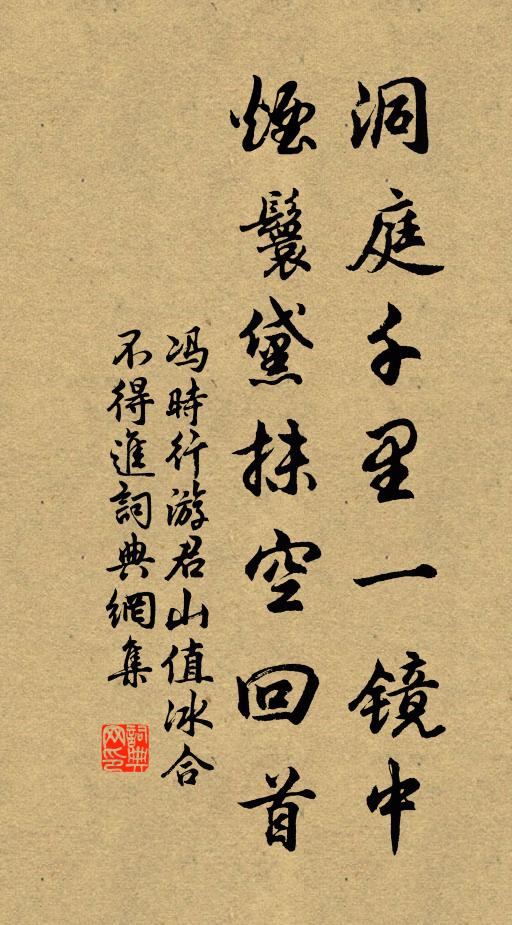 洞庭千里一镜中
烟鬟黛抹空回首
冯時行游君山值冰合
不得進詞典網集
詞典网印